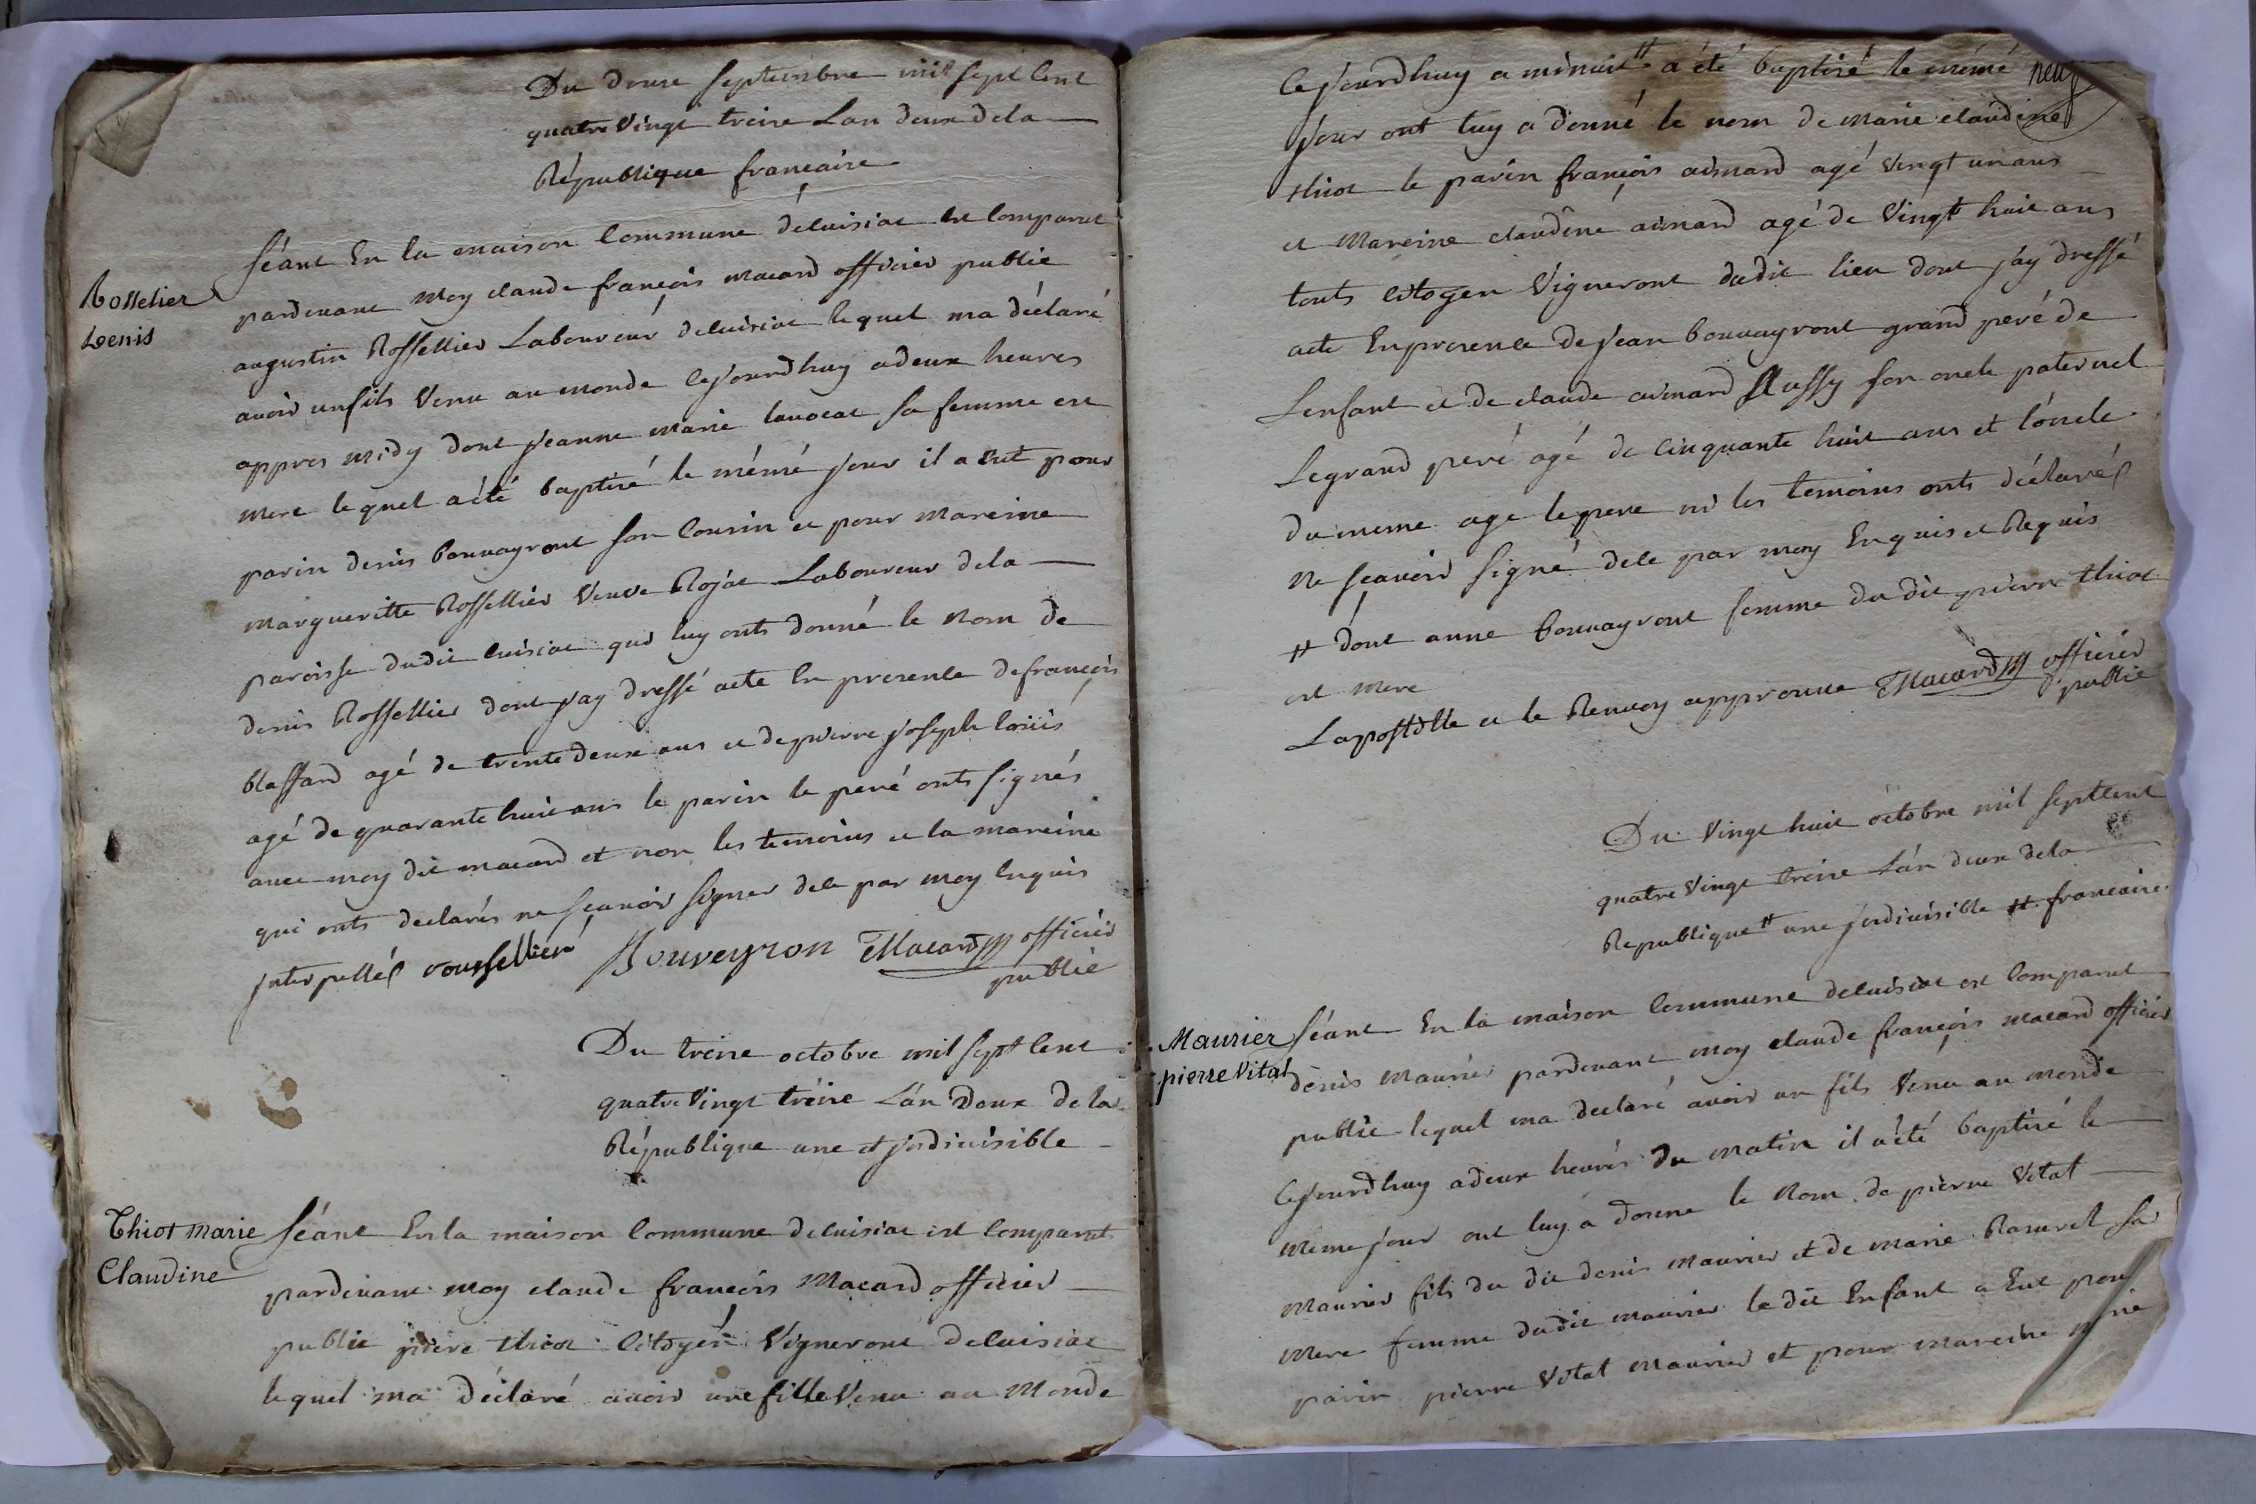 Du douze septembre mil sept Cent
quatre Vingt treize Lan deux dela
République francaise
Rosselier
Denis
séant En la maison Commune decuisiat est Comparut
pardevant Moy claude françois macard officier public
augustin Rossellier Laboureur decuisiat lequel ma déclaré
avoir unfils Venu au monde Cejourdhuy adeux heures
appres midy dont jeanne marie lavocat sa femme est
mere lequel aété baptizé le mémé jour il a Eut pour
parin denis bouvayront son Cousin et pour mareine
margueritte Rossellier Veuve Rojat Laboureur dela
paroisse dudit cuisiat qui luy onts donné le Nom de
denis Rossellier dont jay dressé acte En presence defrançois
blaffard agé de trente deux ans et depierre joseph louis
agé de quarante huit ans le parin le peré onts signés
avec moy dit macard et non les temoins et la mareine
qui onts declarés ne sçavoir signer dele par moy Enquis
jnterpellés rousselliere Bouveyron CMacard officier
public
Du treize octobre mil sept Cent
quatre Vingt treize L'an Deux De la
République une et jndivisible
Thiot Marie
Claudine
séant En la maison Commune decuisiat est Comparut
pardevant Moy claude françois Macard officier
public piere thiot Citoyén Vigneront decuisiat
lequel ma déclaré avoir une fille Venu au Monde
neuf
Cejourdhuy a minuit # a été baptizé le mémé
jour ont luy a donné le nom de Marie claudine
thiot le parin françois aimard agé Vingt un ans
et Mareine claudine aimard agé de Vingt huit ans
touts Citoyen Vigneront dudit lieu dont jay dressé
acte Enpresence de jean bouvayront grand peré de
Lenfant et de claude aimard Sussy son oncle paternel
Legrand peré agé de Cinquante huit ans et loncle
du meme age le pere ni les temoins onts déclarés
Ne sçavoir signé dele par moy Enquis et Requis
# dont anne bouvayront femme du dit pierre thiot
est Mere
Lapostille et le Renvoy approuvé CMacard officier
public
Du Vingt huit octobre mil septcent
quatre Vingt treize L'an deux dela
Republique # une jndivisible # francaise
Maurier
pierre Vital
séant En la maison Commune decuisiat est Comparut
denis Maurier pardevant moy claude françois macard officier
public lequel ma declaré avoir un fils Venu au monde
Cejourdhuy adeux heures du Matin il aété baptizé le
meme jour ont luy a donne le Nom de pierre Vital
Maurier fils du dit denis Maurier et de marie Razurel sa
Mere femme dudit maurier le dit Enfant a Eut pour
parin pierre Vital Maurier et pour mareine